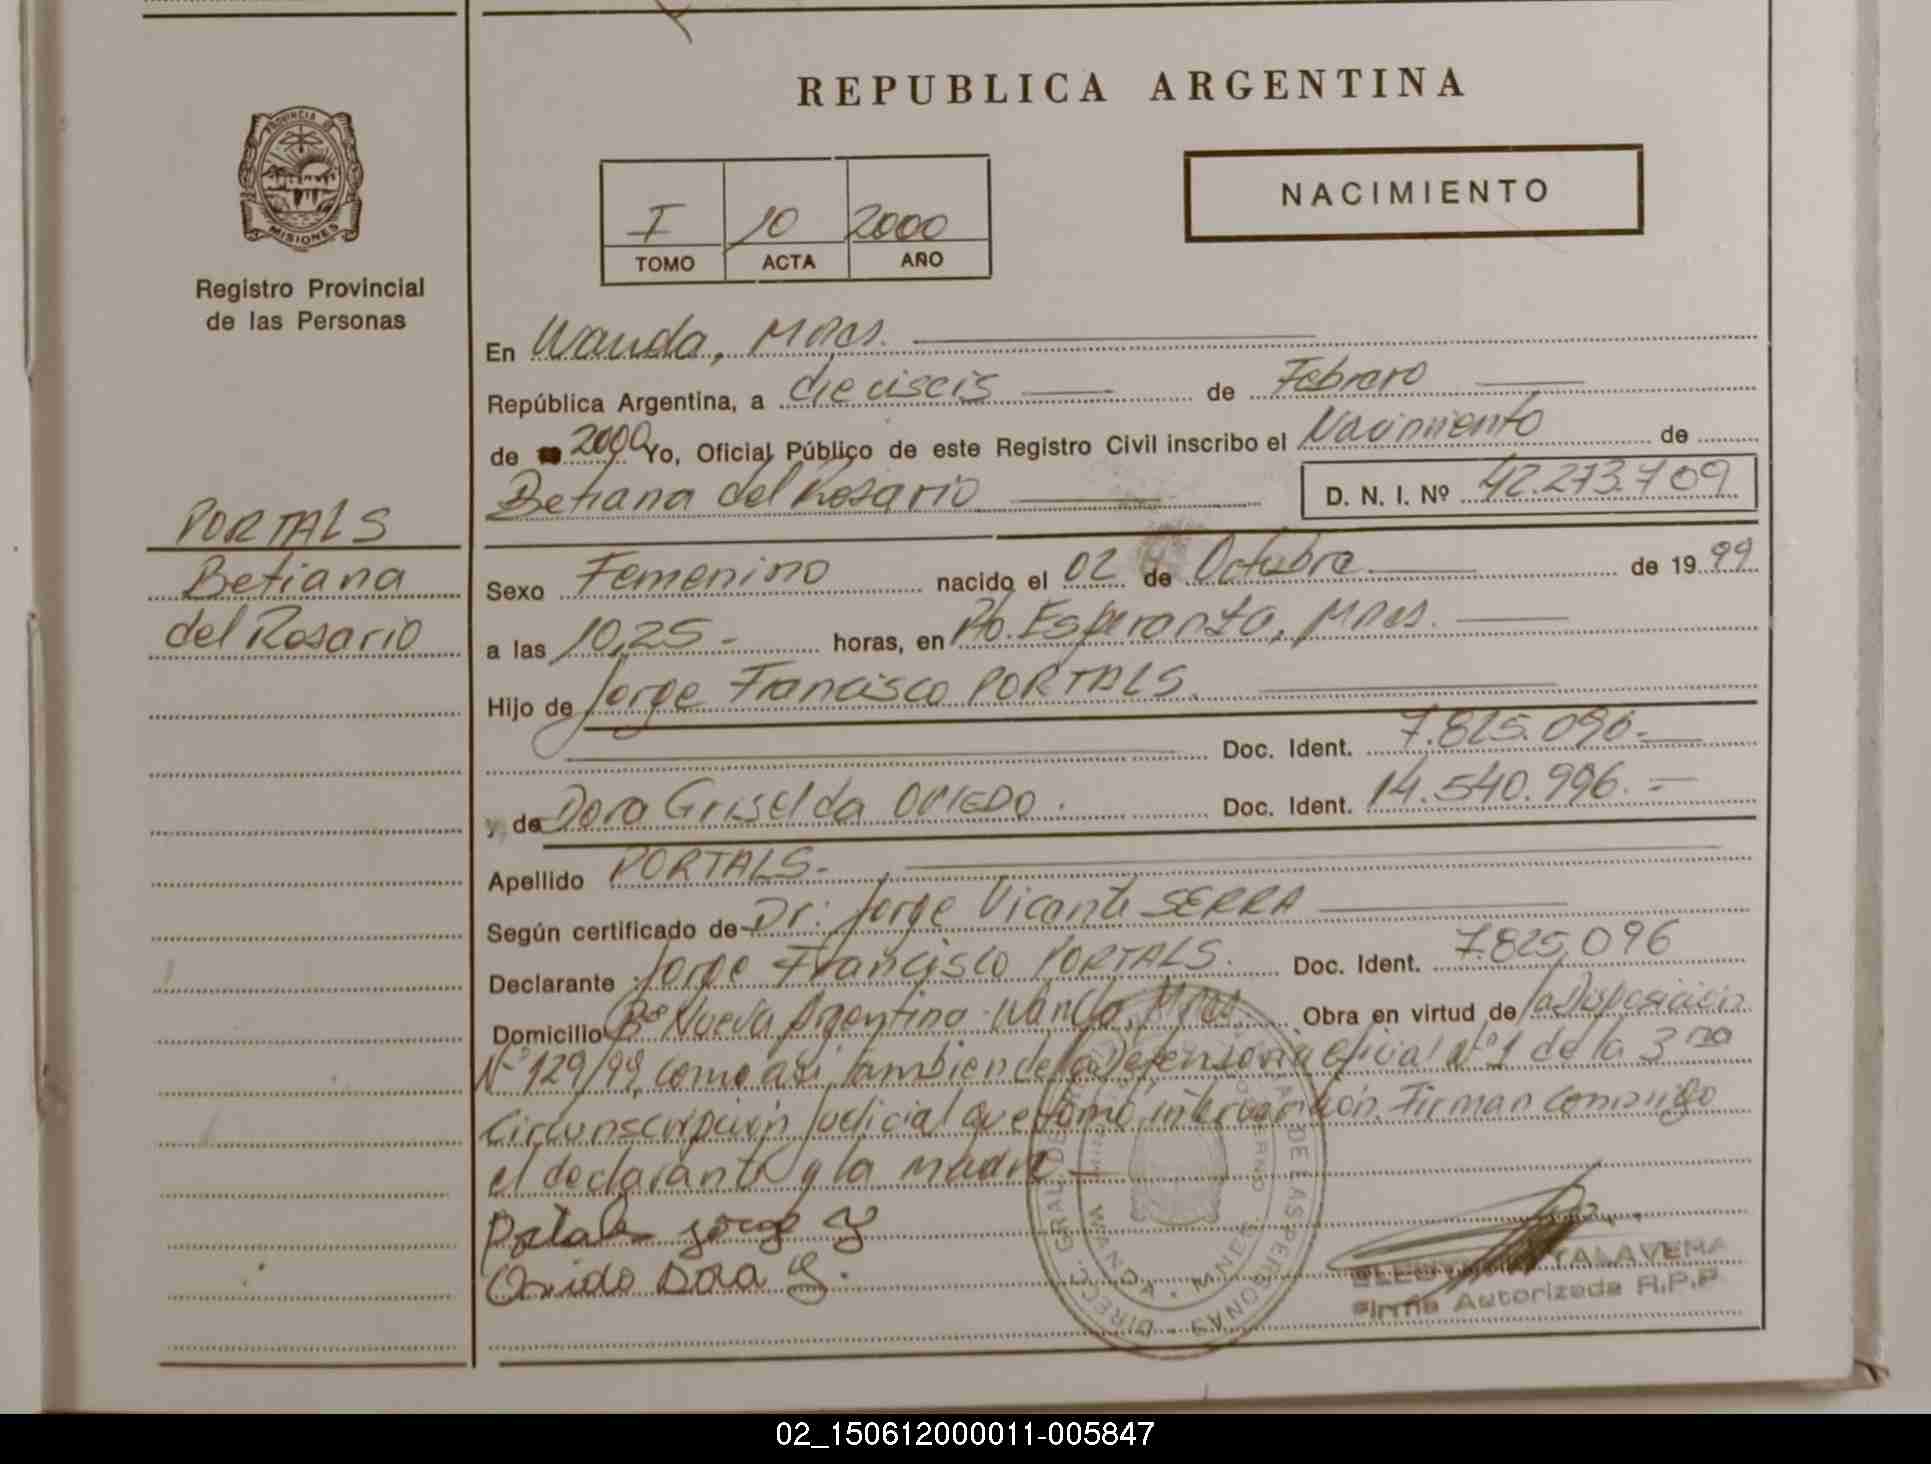 REPUBLICA ARGENTINA
PROVINCIA DE
MISIONES
Registro Provincial
de las Personas
I 10 2000
TOMO ACTA AÑO
NACIMIENTO
En Wanda, Mnes.
República Argentina, a dieciseis de Febrero
de 2000 Yo, Oficial Público de este Registro Civil inscribo el Nacimiento de
Betiana del Rosario D. N. I. Nº 42.273.709
PORTALS
Betiana
del Rosario
Sexo Femenino nacido el 02 de Octubre de 1999
a las 10,25- horas, en Pto. Esperanza, Mnes.
Hijo de Jorge Francisco PORTALS.
Doc. Ident. 7.825.096.-
y de Dora Griselda OVIEDO. Doc. Ident. 14.540.996.-
Apellido PORTALS-
Según certificado de Dr: Jorge Vicente SERRA
Declarante Jorge Francisco PORTALS. Doc. Ident. 7.825,096
Domicilio Bº Nueva Argentina-Wanda, Mnes. Obra en virtud de la Disposición
Nº 129/99, como asi tambien de la Defensoria Oficial Nº 1 de la 3ra
Circunscripción Judicial que tomó intervención. Firman conmigo
el declarante y la madre
Portals Jorge F
Oviedo Dora G.
DIREC. GRAL. DE DE LAS PERSONAS
WANDA - MNES.
TALAVERA
Firma Autorizada R.P.P.
02_150612000011-005847